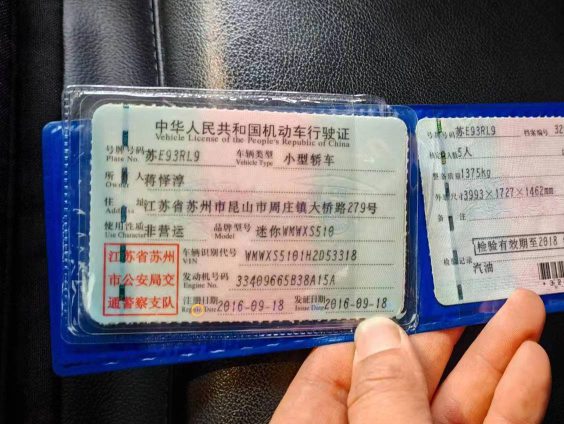 中华人民共和国机动车行驶证
Vehicle License of the People's Republic of China
号牌号码 苏E93RL9 车辆类型 小型轿车
Plate No. Vehicle Type
所有人 蒋怿淳
Owner
住址 江苏省苏州市昆山市周庄镇大桥路279号
Address
使用性质 非营运 品牌型号 迷你WMWXS510
Use Character Model
江苏省苏州
市公安局交
通警察支队
车辆识别代号 WMWXS5101H2D53318
VIN
发动机号码 33409665B38A15A
Engine No.
注册日期 2016-09-18 发证日期 2016-09-18
Register Date Issue Date
号牌号码 苏E93RL9 档案编号 32
5人
整备质量 1375kg
外廓尺寸 3993×1727×1462mm
备注
检验有效期至2018
检验记录
汽油